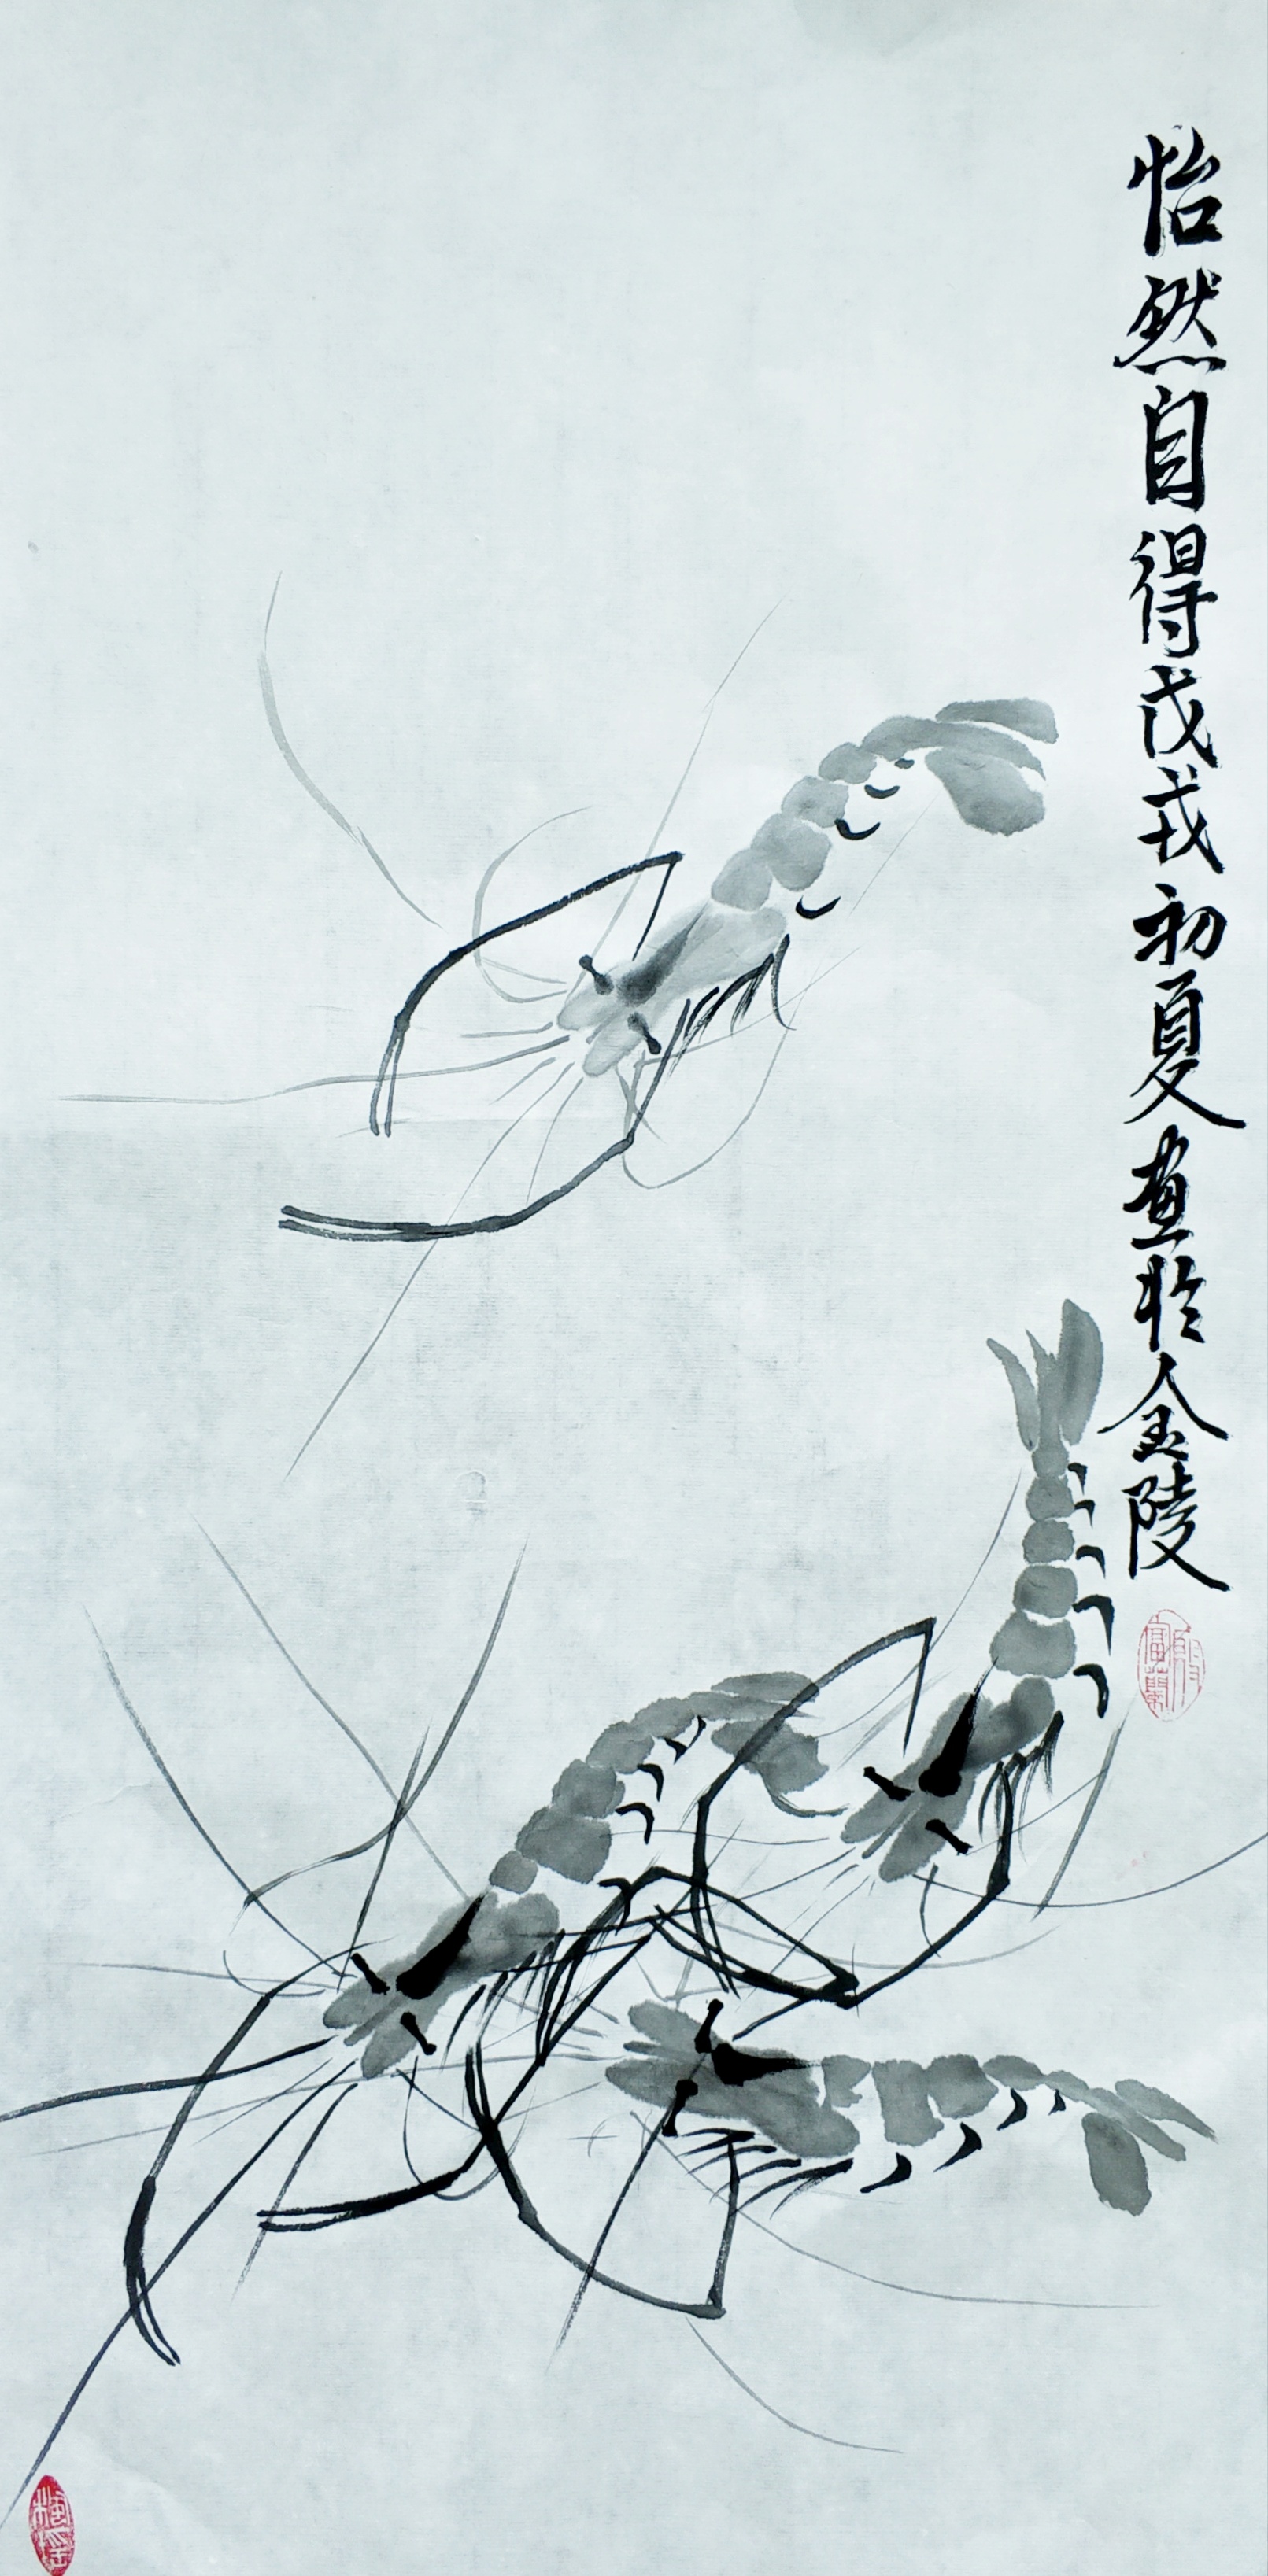 怡然自得戊戌初夏畫於金陵